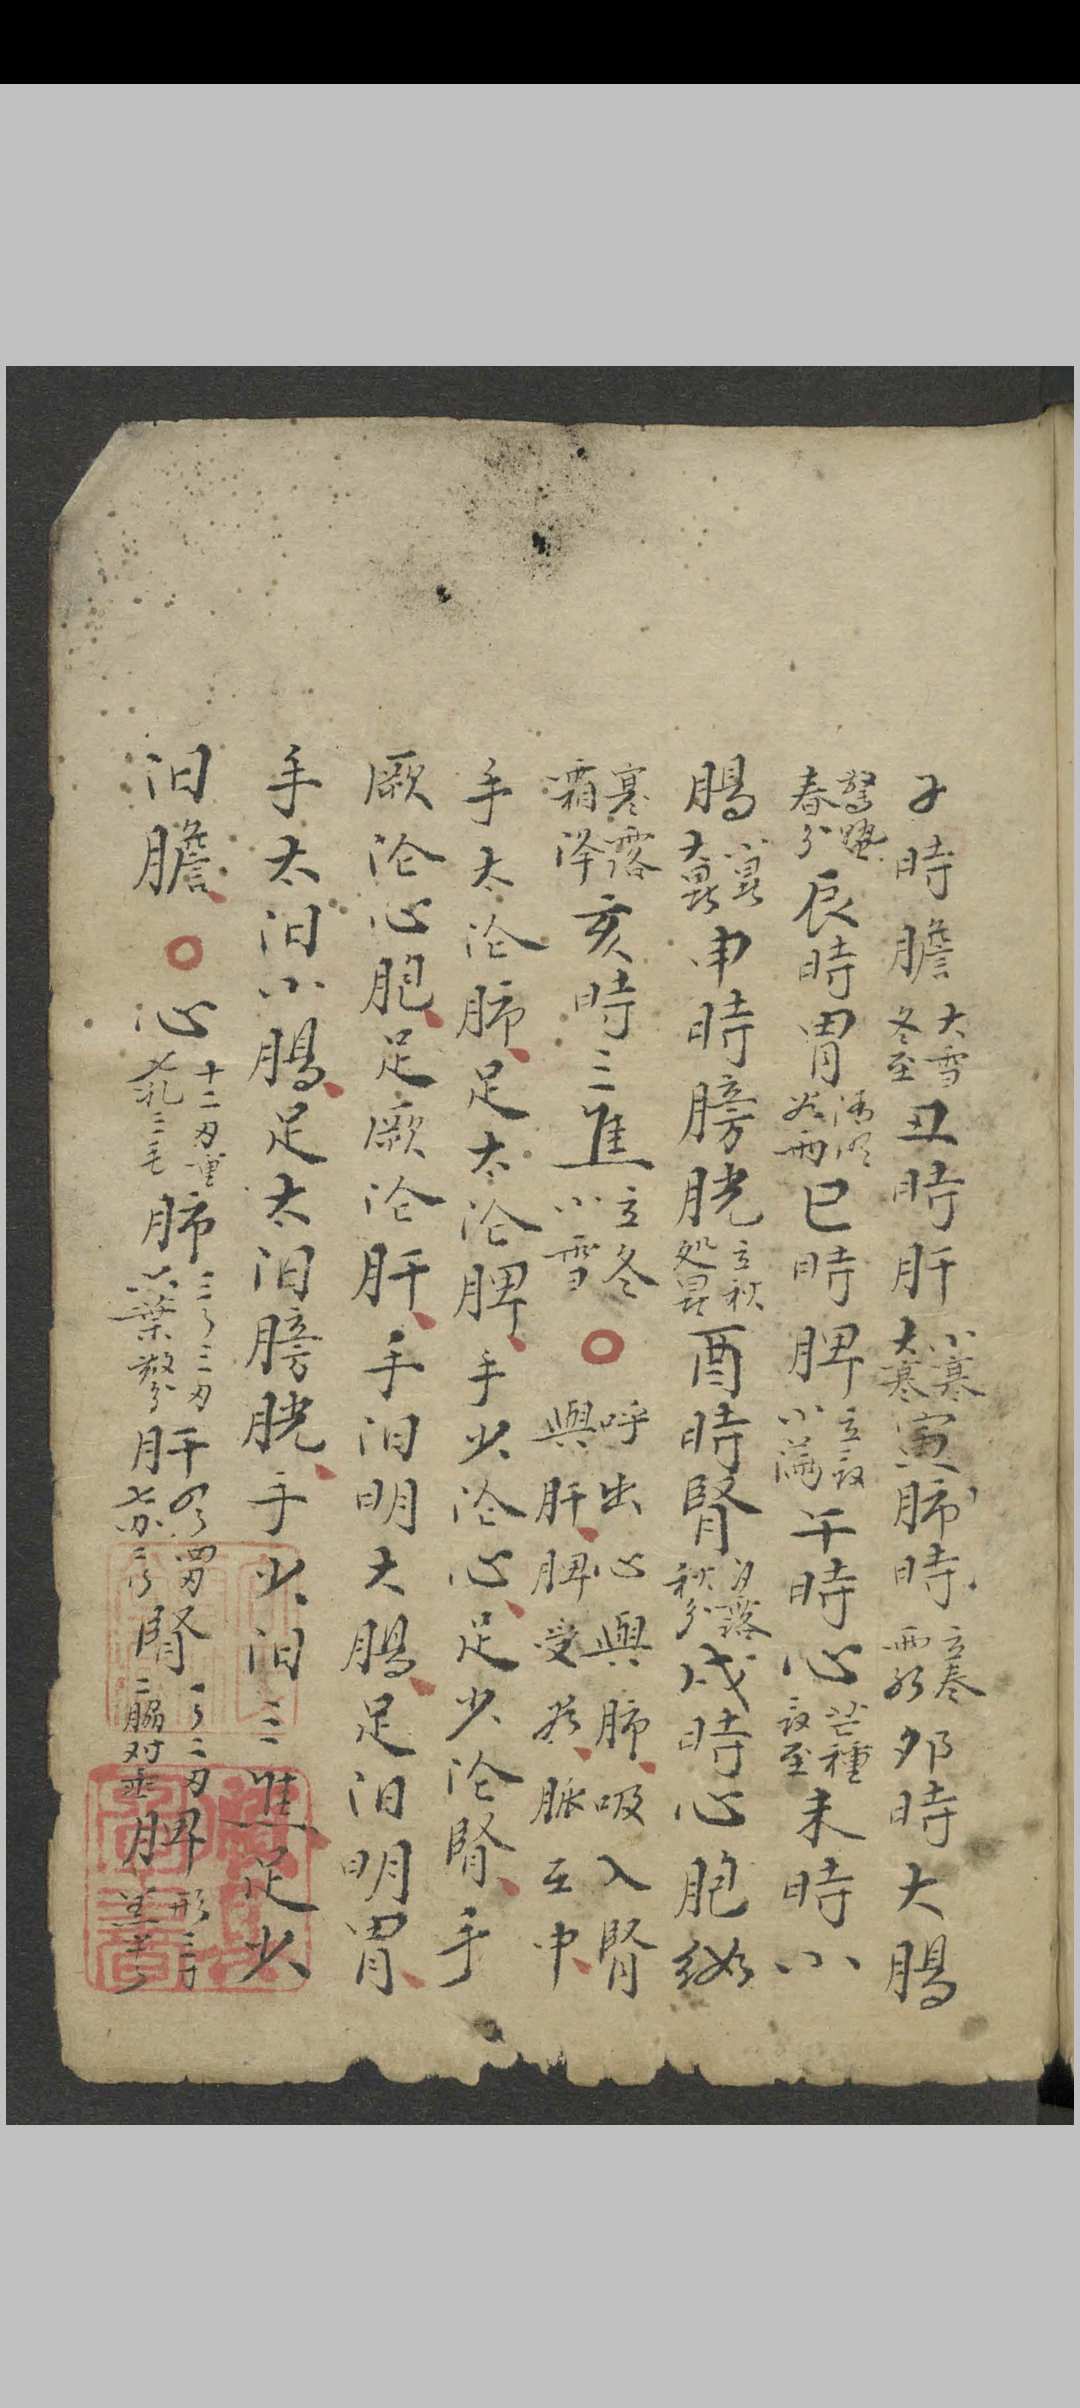 子時膽大雪冬至丑時肝小寒大寒寅肺時立春雨水夘時大腸
驚蟄春分辰時胃清明谷雨巳時脾立夏小滿午時心芒種夏至未時小
腸小暑大暑申時膀胱立秋処暑酉時腎白露秋分戌時心胞絡
寒露霜降亥時三焦立冬小雪○呼出心與肺吸入腎與肝脾受谷脈在中
手太沦肺足太沦脾手少沦心足少沦腎手
厥沦心胞足厥沦肝手汨明大腸足汨明胃
手太汨小腸足太汨膀胱手少汨三焦足少
汨膽○心十二刃重七孔三毛肺三斤三刃六葉兩分肝四斤四刃七亦二斤腎一斤二刃二腦对垂脾形三刀